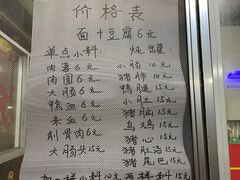 价格表
面+豆腐6元
单点小料: 炖 罐
肉蛋6元 小肠10元
肉圆6元 猪肺10元
大肠6元 鸭腿15元
鸭血6元 小肚15元
米血6元 猪脑15元
剔骨肉6元 乌鸡15元
大肠头15元 猪心15元
猪肚15元
猪尾巴15元
加一样小料10元 两样料15元